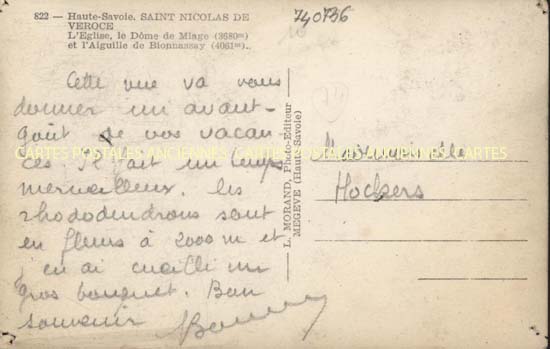 822 — Haute-Savoie. SAINT NICOLAS DE
VEROCE
L'Eglise, le Dôme de Miage (3680m)
et l'Aiguille de Bionnassay (4061m).
740736
Cette vue va vous
donner un avant-
goût de vos vacan-
ces Il fait un temps
merveilleux. les
rhododendrons sont
en fleurs à 2000 m et
j'en ai cueilli un
gros bouquet. Bon
souvenir
L. MORAND, Photo-Editeur
MEGEVE (Haute-Savoie)
Mademoiselle
Hockers
CARTES POSTALES ANCIENNES CARTES POSTALES ANCIENNES CARTES POSTALES ANCIENNES